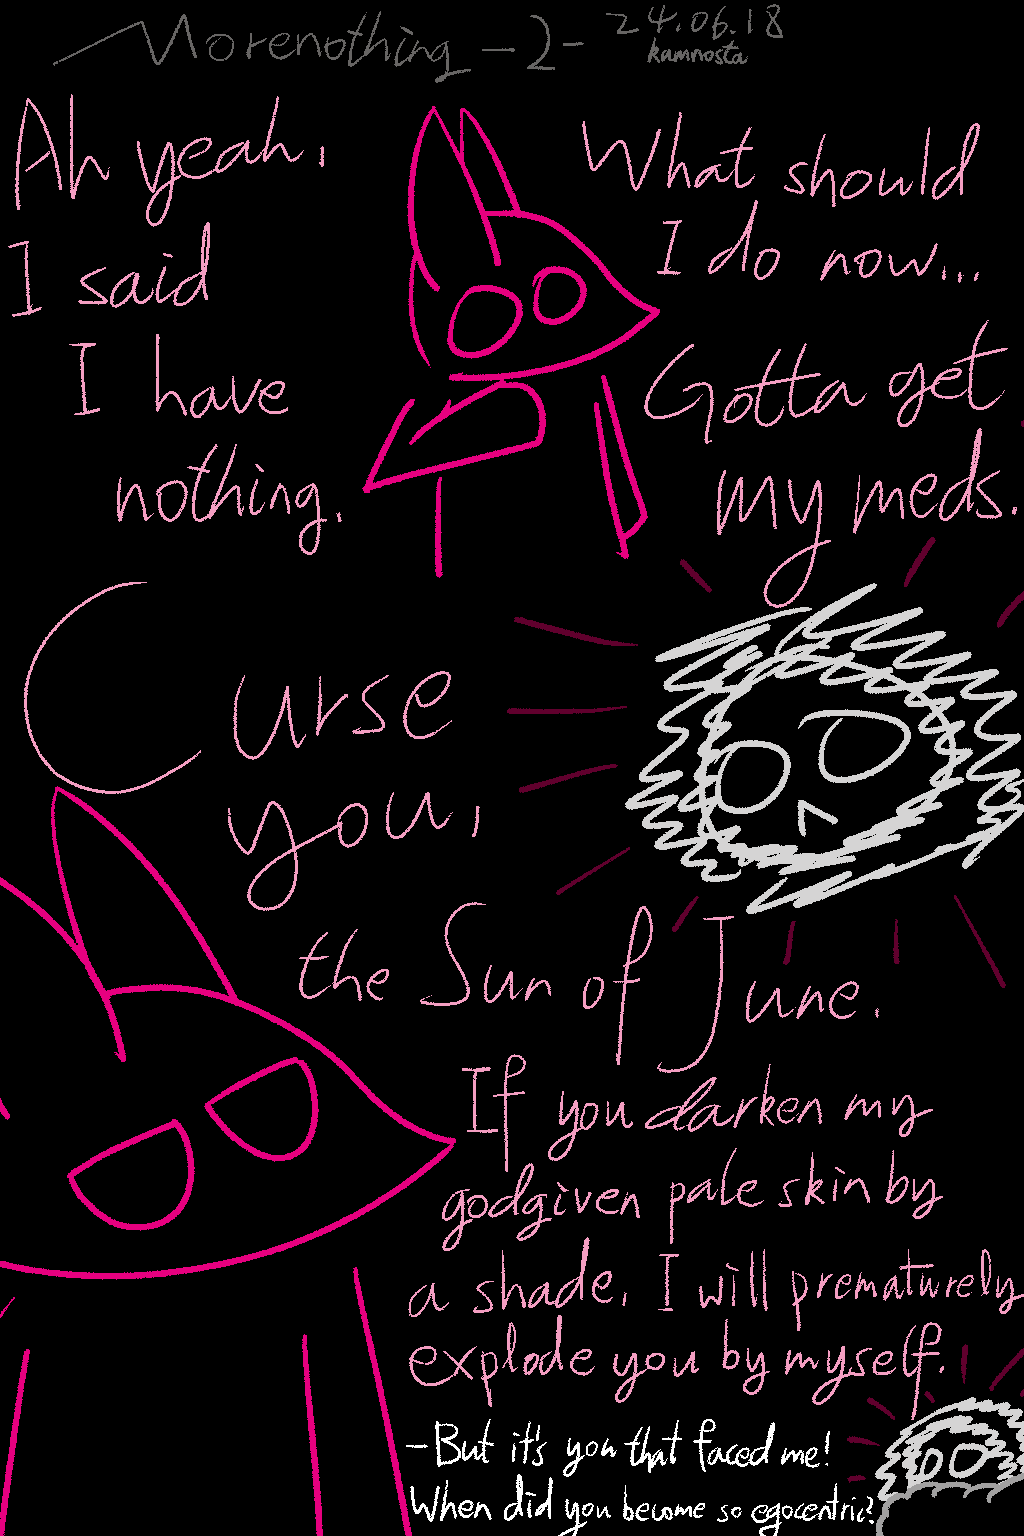 Morenothing -2- 24.06.18
kamnosta
Ah yeah,
I said
I have
nothing.
What should
I do now...
Gotta get
my meds.
Curse
you,
the Sun of June.
If you darken my
godgiven pale skin by
a shade, I will prematurely
explode you by myself.
-But it's you that faced me!
When did you become so egocentric?